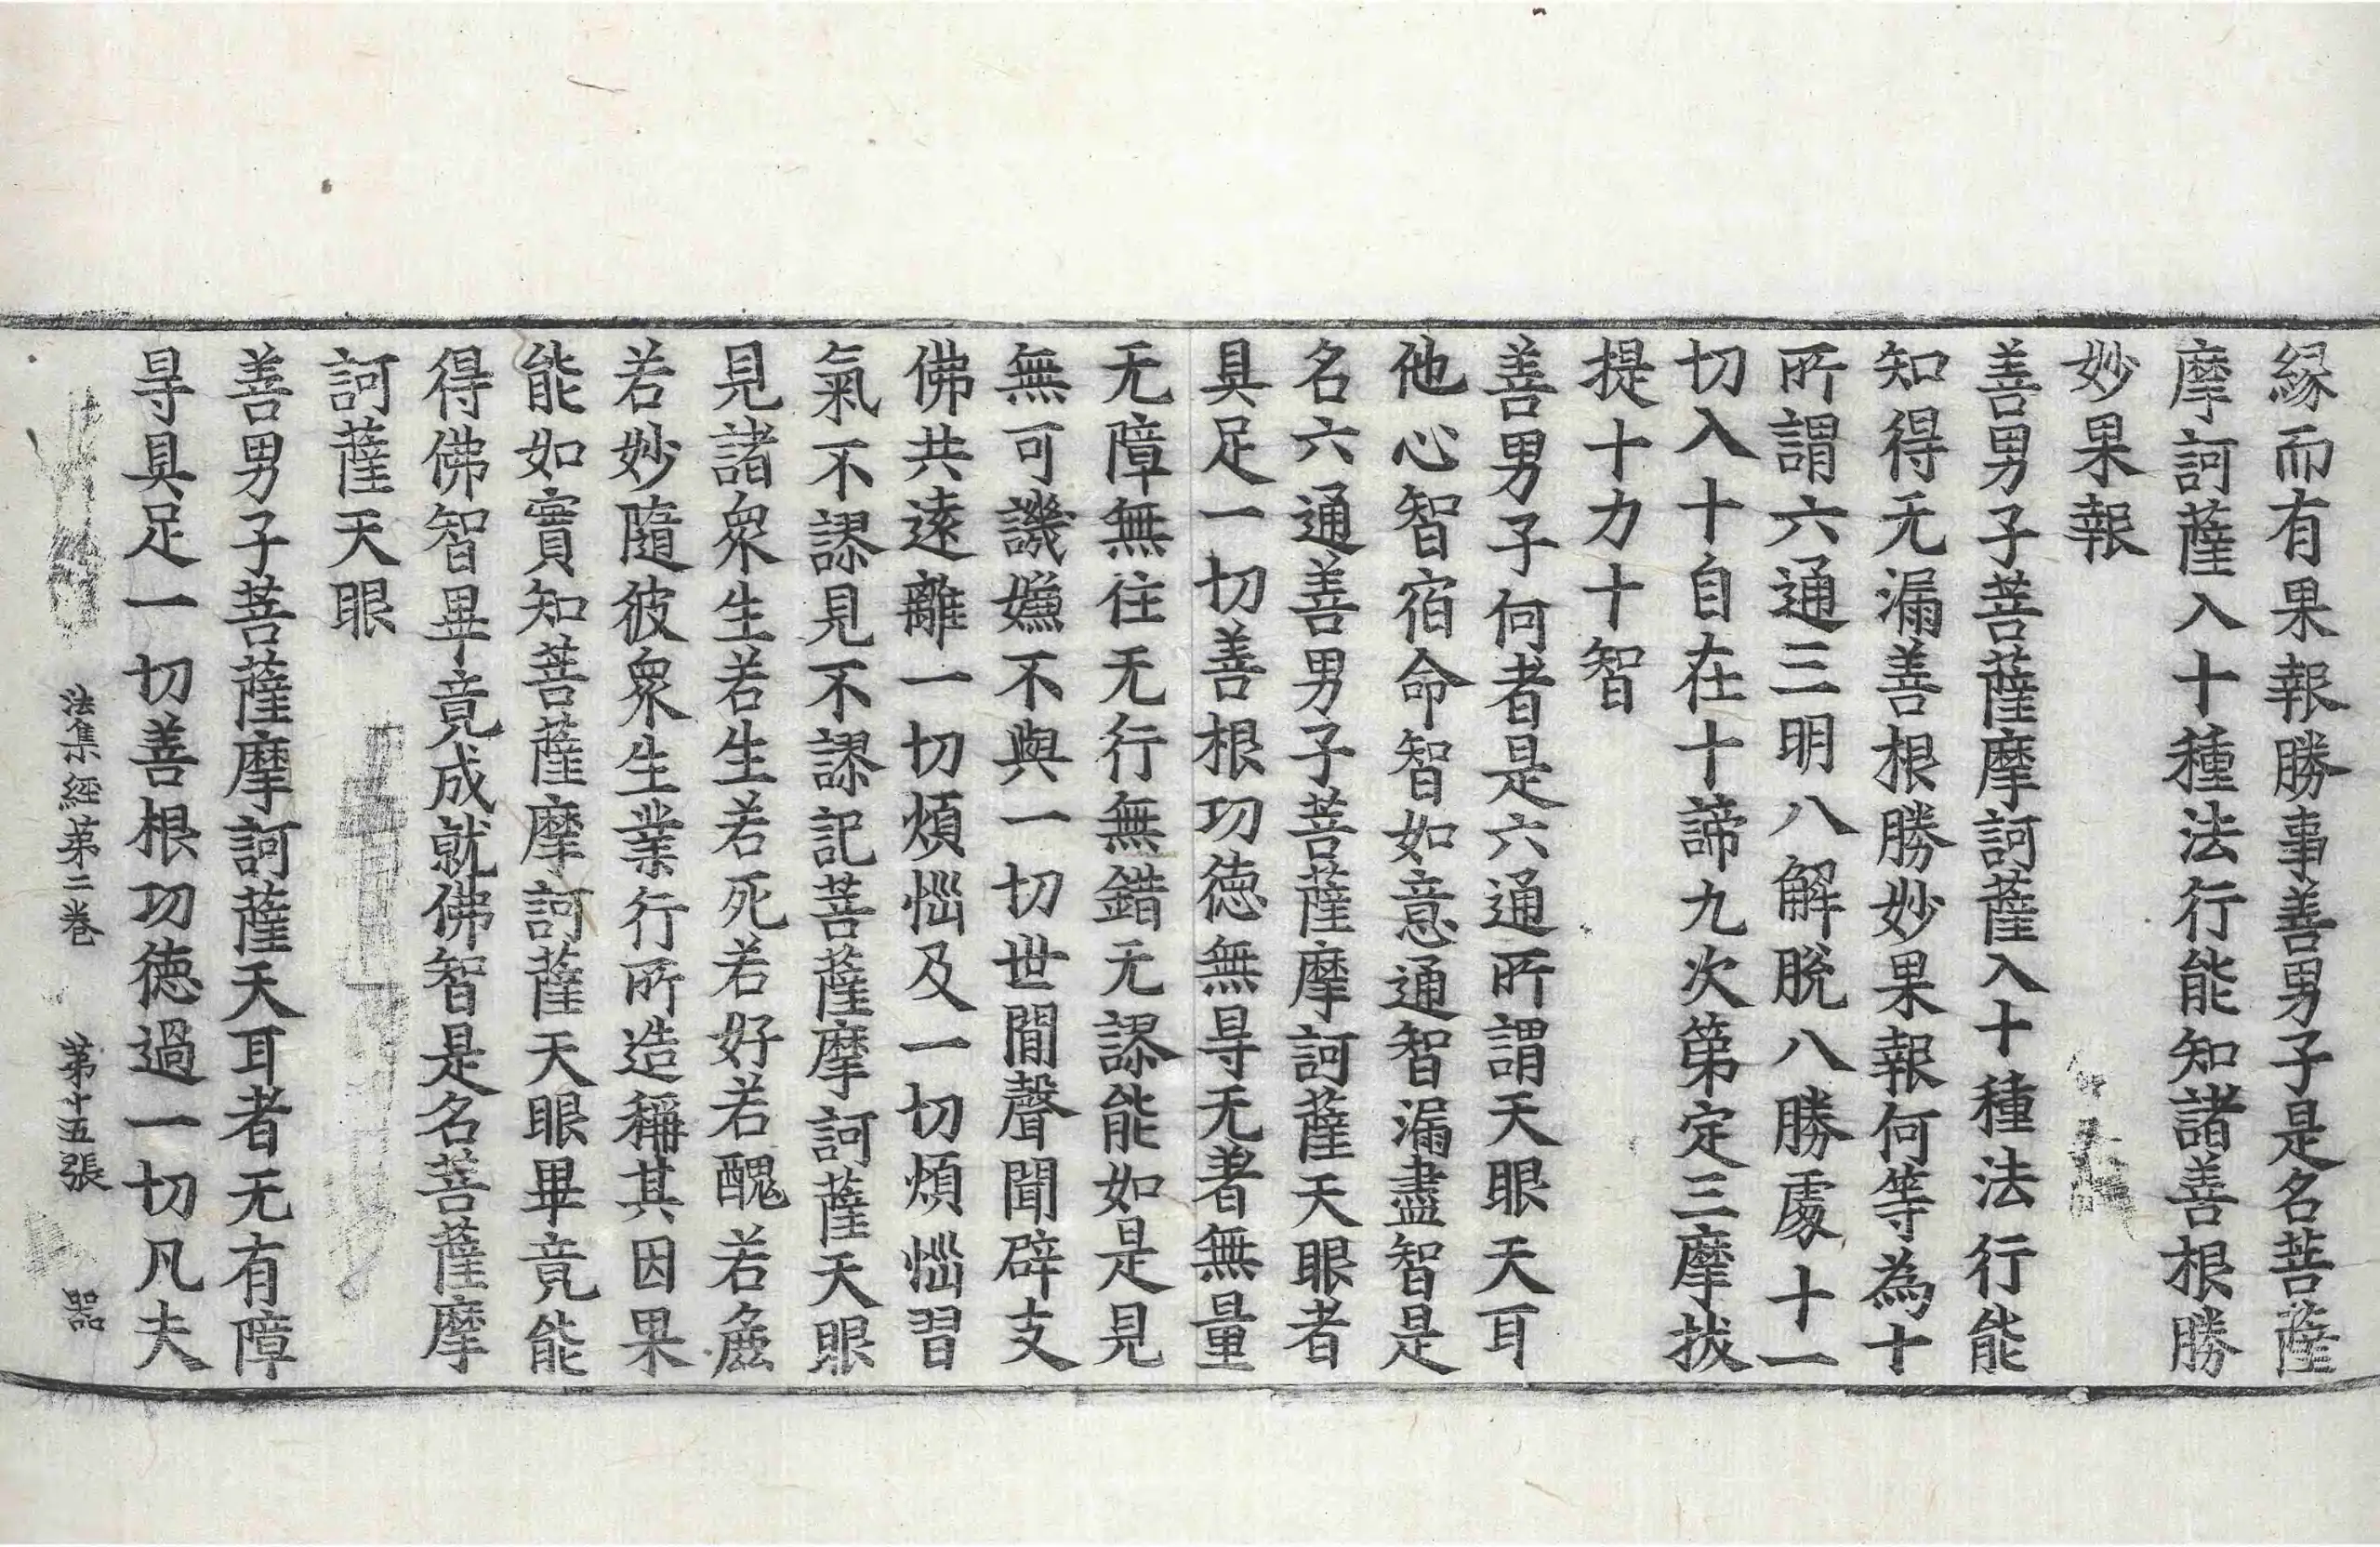 緣而有果報勝事善男子是名菩薩
摩訶薩入十種法行能知諸善根勝
妙果報
善男子菩薩摩訶薩入十種法行能
知得无漏善根勝妙果報何等為十
所謂六通三明八解脫八勝處十一
切入十自在十諦九次第定三摩拔
提十力十智
善男子何者是六通所謂天眼天耳
他心智宿命智如意通智漏盡智是
名六通善男子菩薩摩訶薩天眼者
具足一切善根功德無㝵无著無量
无障無住无行無錯无謬能如是見
無可譏嫌不與一切世閒聲聞辟支
佛共遠離一切煩惱及一切煩惱習
氣不謬見不謬記菩薩摩訶薩天眼
見諸眾生若生若死若好若醜若麁
若妙隨彼眾生業行所造稱其因果
能如實知菩薩摩訶薩天眼畢竟能
得佛智畢竟成就佛智是名菩薩摩
訶薩天眼
善男子菩薩摩訶薩天耳者无有障
㝵具足一切善根功德過一切凡夫
法集經第二卷 第十五張 器